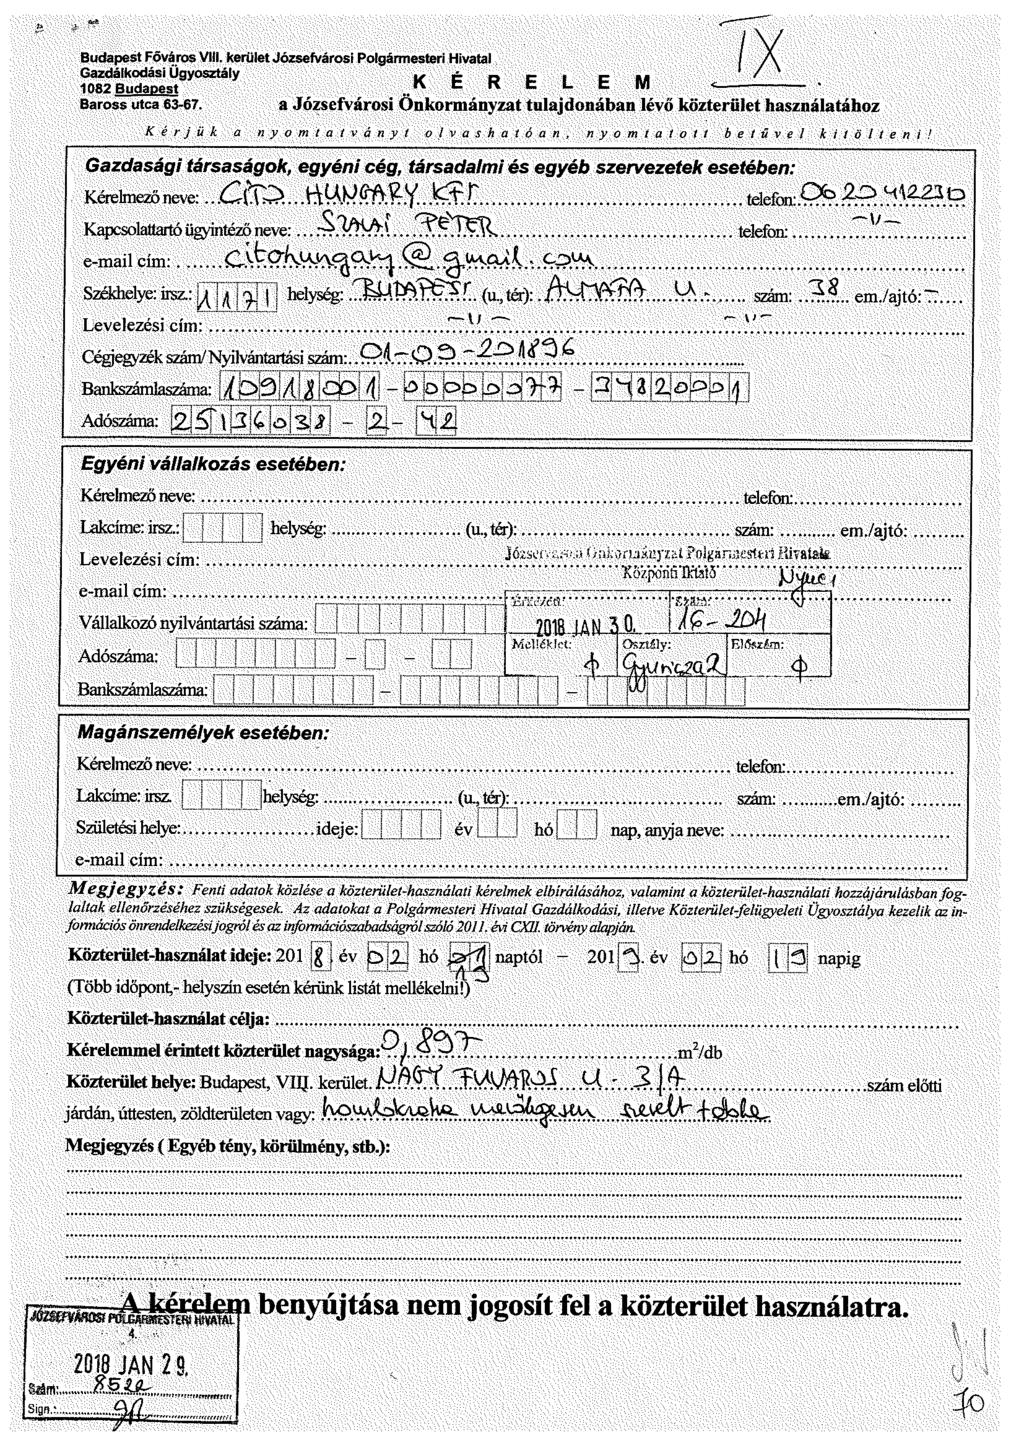 IX
Budapest Főváros VIII. kerület Józsefvárosi Polgármesteri Hivatal
Gazdálkodási Ügyosztály
1082 Budapest
Baross utca 63-67.
K É R E L E M
a Józsefvárosi Önkormányzat tulajdonában lévő közterület használatához
Kérjük a nyomtatványt olvashatóan, nyomtatott betűvel kitölteni!
Gazdasági társaságok, egyéni cég, társadalmi és egyéb szervezetek esetében:
Kérelmező neve: CITO HUNGARY KFT telefon: 06 20 4122310
Kapcsolattartó ügyintéző neve: SZALAI PÉTER telefon: -"-
e-mail cím: citohungary@gmail.com
Székhelye: irsz.: 1171 helység: BUDAPEST (u., tér): ALMAFA U. szám: 38 em./ajtó: -
Levelezési cím: -"- -"-
Cégjegyzék szám/ Nyilvántartási szám: 01-09-201896
Bankszámlaszáma: 10918001 - 00000077 - 34820001
Adószáma: 25136038 - 2 - 42
Egyéni vállalkozás esetében:
Kérelmező neve: telefon:
Lakcíme: irsz.: helység: (u., tér): szám: em./ajtó:
Levelezési cím: Józsefvárosi Önkormányzat Polgármesteri Hivatala
Központi Iktató
e-mail cím:
Érkezett: Szám:
Vállalkozó nyilvántartási száma: 2018 JAN 30. 16-204
Melléklet: Osztály: Előszám:
Adószáma: - - ϕ ϕ
Bankszámlaszáma: - -
Magánszemélyek esetében:
Kérelmező neve: telefon:
Lakcíme: irsz. helység: (u., tér): szám: em./ajtó:
Születési helye: ideje: év hó nap, anyja neve:
e-mail cím:
Megjegyzés: Fenti adatok közlése a közterület-használati kérelmek elbírálásához, valamint a közterület-használati hozzájárulásban fog-
laltak ellenőrzéséhez szükségesek. Az adatokat a Polgármesteri Hivatal Gazdálkodási, illetve Közterület-felügyeleti Ügyosztálya kezelik az in-
formációs önrendelkezési jogról és az információszabadságról szóló 2011. évi CXII. törvény alapján.
Közterület-használat ideje: 2018. év 02 hó 19 naptól – 2019. év 02 hó 19 napig
(Több időpont,- helyszín esetén kérünk listát mellékelni!)
Közterület-használat célja:
Kérelemmel érintett közterület nagysága: 0,897 m²/db
Közterület helye: Budapest, VIII. kerület. NAGY FUVAROS U. 3/A szám előtti
járdán, úttesten, zöldterületen vagy: homlokzatra merőlegesen szerelt tábla
Megjegyzés ( Egyéb tény, körülmény, stb.):
A kérelem benyújtása nem jogosít fel a közterület használatra.
JÓZSEFVÁROSI POLGÁRMESTERI HIVATAL
4.
2018 JAN 29.
Szám: 8522
Sign.:
70